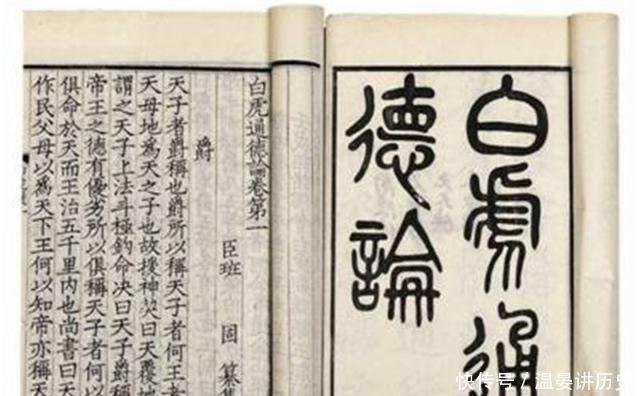 白虎通
德論
白虎通德論卷第一
臣班 固 纂集
爵
天子者爵稱也爵所以稱天子者何王者
天母地為天之子也故援神契曰天覆地
謂之天子上法斗極鈎命決曰天子爵
帝王之德有優劣所以俱稱天子者何以
俱命於天而王治五千里内也尚書曰天
作民父母以為天下王何以知帝亦稱天
快传号 / 温晏讲历史